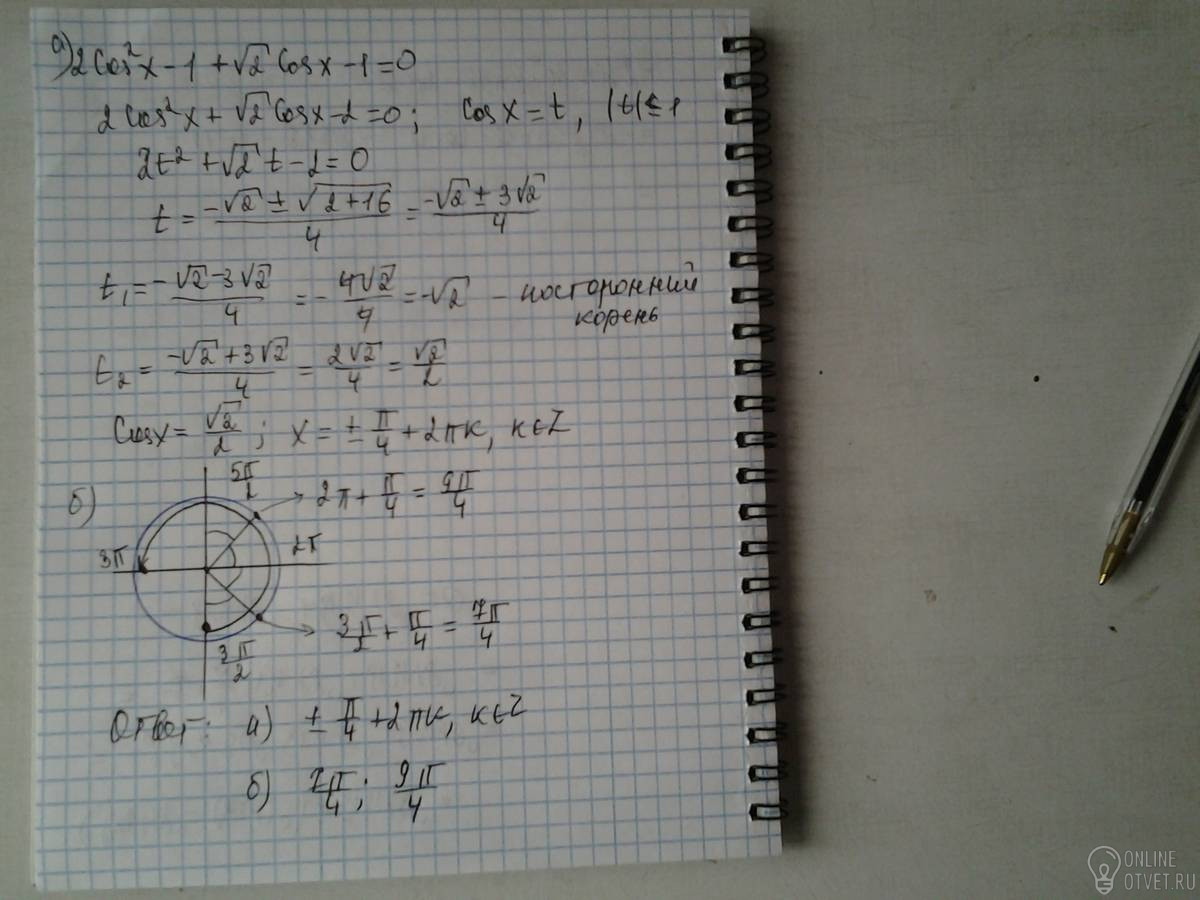 а) 2cos²x - 1 + √2 cosx - 1 = 0
2cos²x + √2 cosx - 2 = 0; cosx = t, |t| ≤ 1
2t² + √2 t - 2 = 0
t = (-√2 ± √(2+16))/4 = (-√2 ± 3√2)/4
t₁ = (-√2 - 3√2)/4 = -4√2/4 = -√2 - посторонний
корень
t₂ = (-√2 + 3√2)/4 = 2√2/4 = √2/2
cosx = √2/2; x = ± π/4 + 2πк, к∈Z
б)
5π/2
2π + π/4 = 9π/4
3π
2π
3π/2 + π/4 = 7π/4
3π/2
Ответ: а) ± π/4 + 2πк, к∈Z
б) 7π/4; 9π/4
ONLINE
OTVET.RU